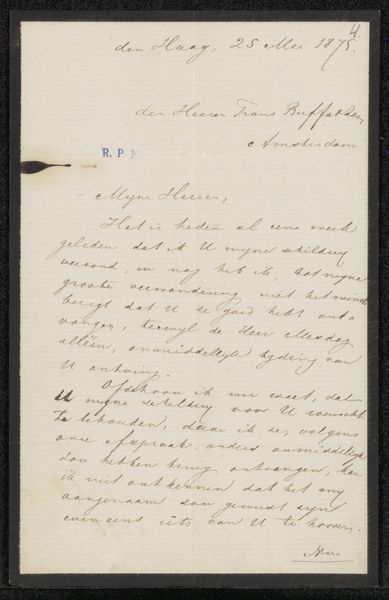 4
den Haag, 25 Mei 1875.
den Heeren Frans Buffa & Zonen
Amsterdam
R. P. K
Mijne Heeren,
Het is heden al eene week
geleden dat ik U mijne schilderij
verzond, en nog heb ik, tot mijne
groote verwondering niet het minste
berigt dat U ze goed hebt ont-
vangen, terwijl de Heer Mesdag
alléén, onmiddellijk tijding van
U ontving.
Ofschoon ik nu weet, dat
U mijne schilderij voor U
te behouden, daar ik ze, volgens
onze afspraak, anders onmiddellijk
zou hebben terug ontvangen, kan
ik niet ontkennen dat het mij
aangenaam zou geweest zijn
eveneens iets van U te hooren.